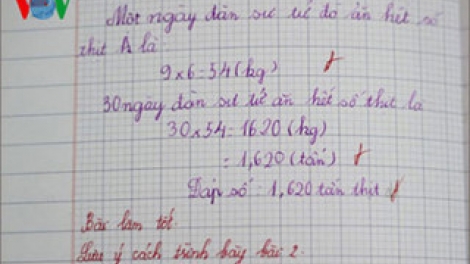 VOV
Một ngày đàn sư tử đó ăn hết số
thịt là:
9 x 6 = 54 (kg)
30 ngày đàn sư tử ăn hết số thịt là
30 x 54 = 1620 (kg)
= 1,620 (tấn)
Đáp số: 1,620 tấn thịt
Bài làm tốt.
Lưu ý cách trình bày bài 2.